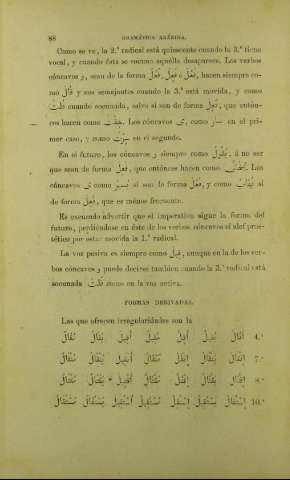 88 GRAMÁTICA ARÁBIGA.
Como se ve, la 2.ª radical está quiescente cuando la 3.ª tiene
vocal, y cuando ésta se socuna aquélla desaparece. Los verbos
cóncavos و, sean de la forma فَعَلَ, فَعِلَ ó فَعُلَ, hacen siempre co-
mo قَالَ y sus semejantes cuando la 3.ª está movida, y como
قُلْتَ cuando socunada, salvo si son de forma فَعِلَ, que entón-
ces hacen como خِفْتَ. Los cóncavos ى, como سَارَ en el pri-
mer caso, y como سِرْتَ en el segundo.
En el futuro, los cóncavos و siempre como يَقُولُ, á no ser
que sean de forma فَعِلَ, que entónces hacen como يَخَافُ. Los
cóncavos ى como يَسِيرُ si son de forma فَعَلَ, y como يَهَابُ si
de forma فَعِلَ, que es ménos frecuente.
Es excusado advertir que el imperativo sigue la forma del
futuro, perdiéndose en éste de los verbos cóncavos el alef pros-
tético por estar movida la 1.ª radical.
La voz pasiva es siempre como قِيلَ, aunque en la de los ver-
bos cóncavos و puede decirse tambien cuando la 3.ª radical está
socunada قُلْتَ como en la voz activa.
FORMAS DERIVADAS.
Las que ofrecen irregularidades son la
4.ª أَقَالَ يُقِيلُ أَقِلْ مُقِيلٌ أُقِيلَ يُقَالُ مُقَالٌ
7.ª إِنْقَالَ يَنْقَالُ إِنْقَلْ مُنْقَالٌ أُنْقِيلَ يُنْقَالُ مُنْقَالٌ
8.ª إِقْتَالَ يَقْتَالُ إِقْتَلْ مُقْتَالٌ أُقْتِيلَ يُقْتَالُ مُقْتَالٌ
10.ª إِسْتَقَالَ يَسْتَقِيلُ إِسْتَقِلْ مُسْتَقِيلٌ أُسْتُقِيلَ يُسْتَقَالُ مُسْتَقَالٌ